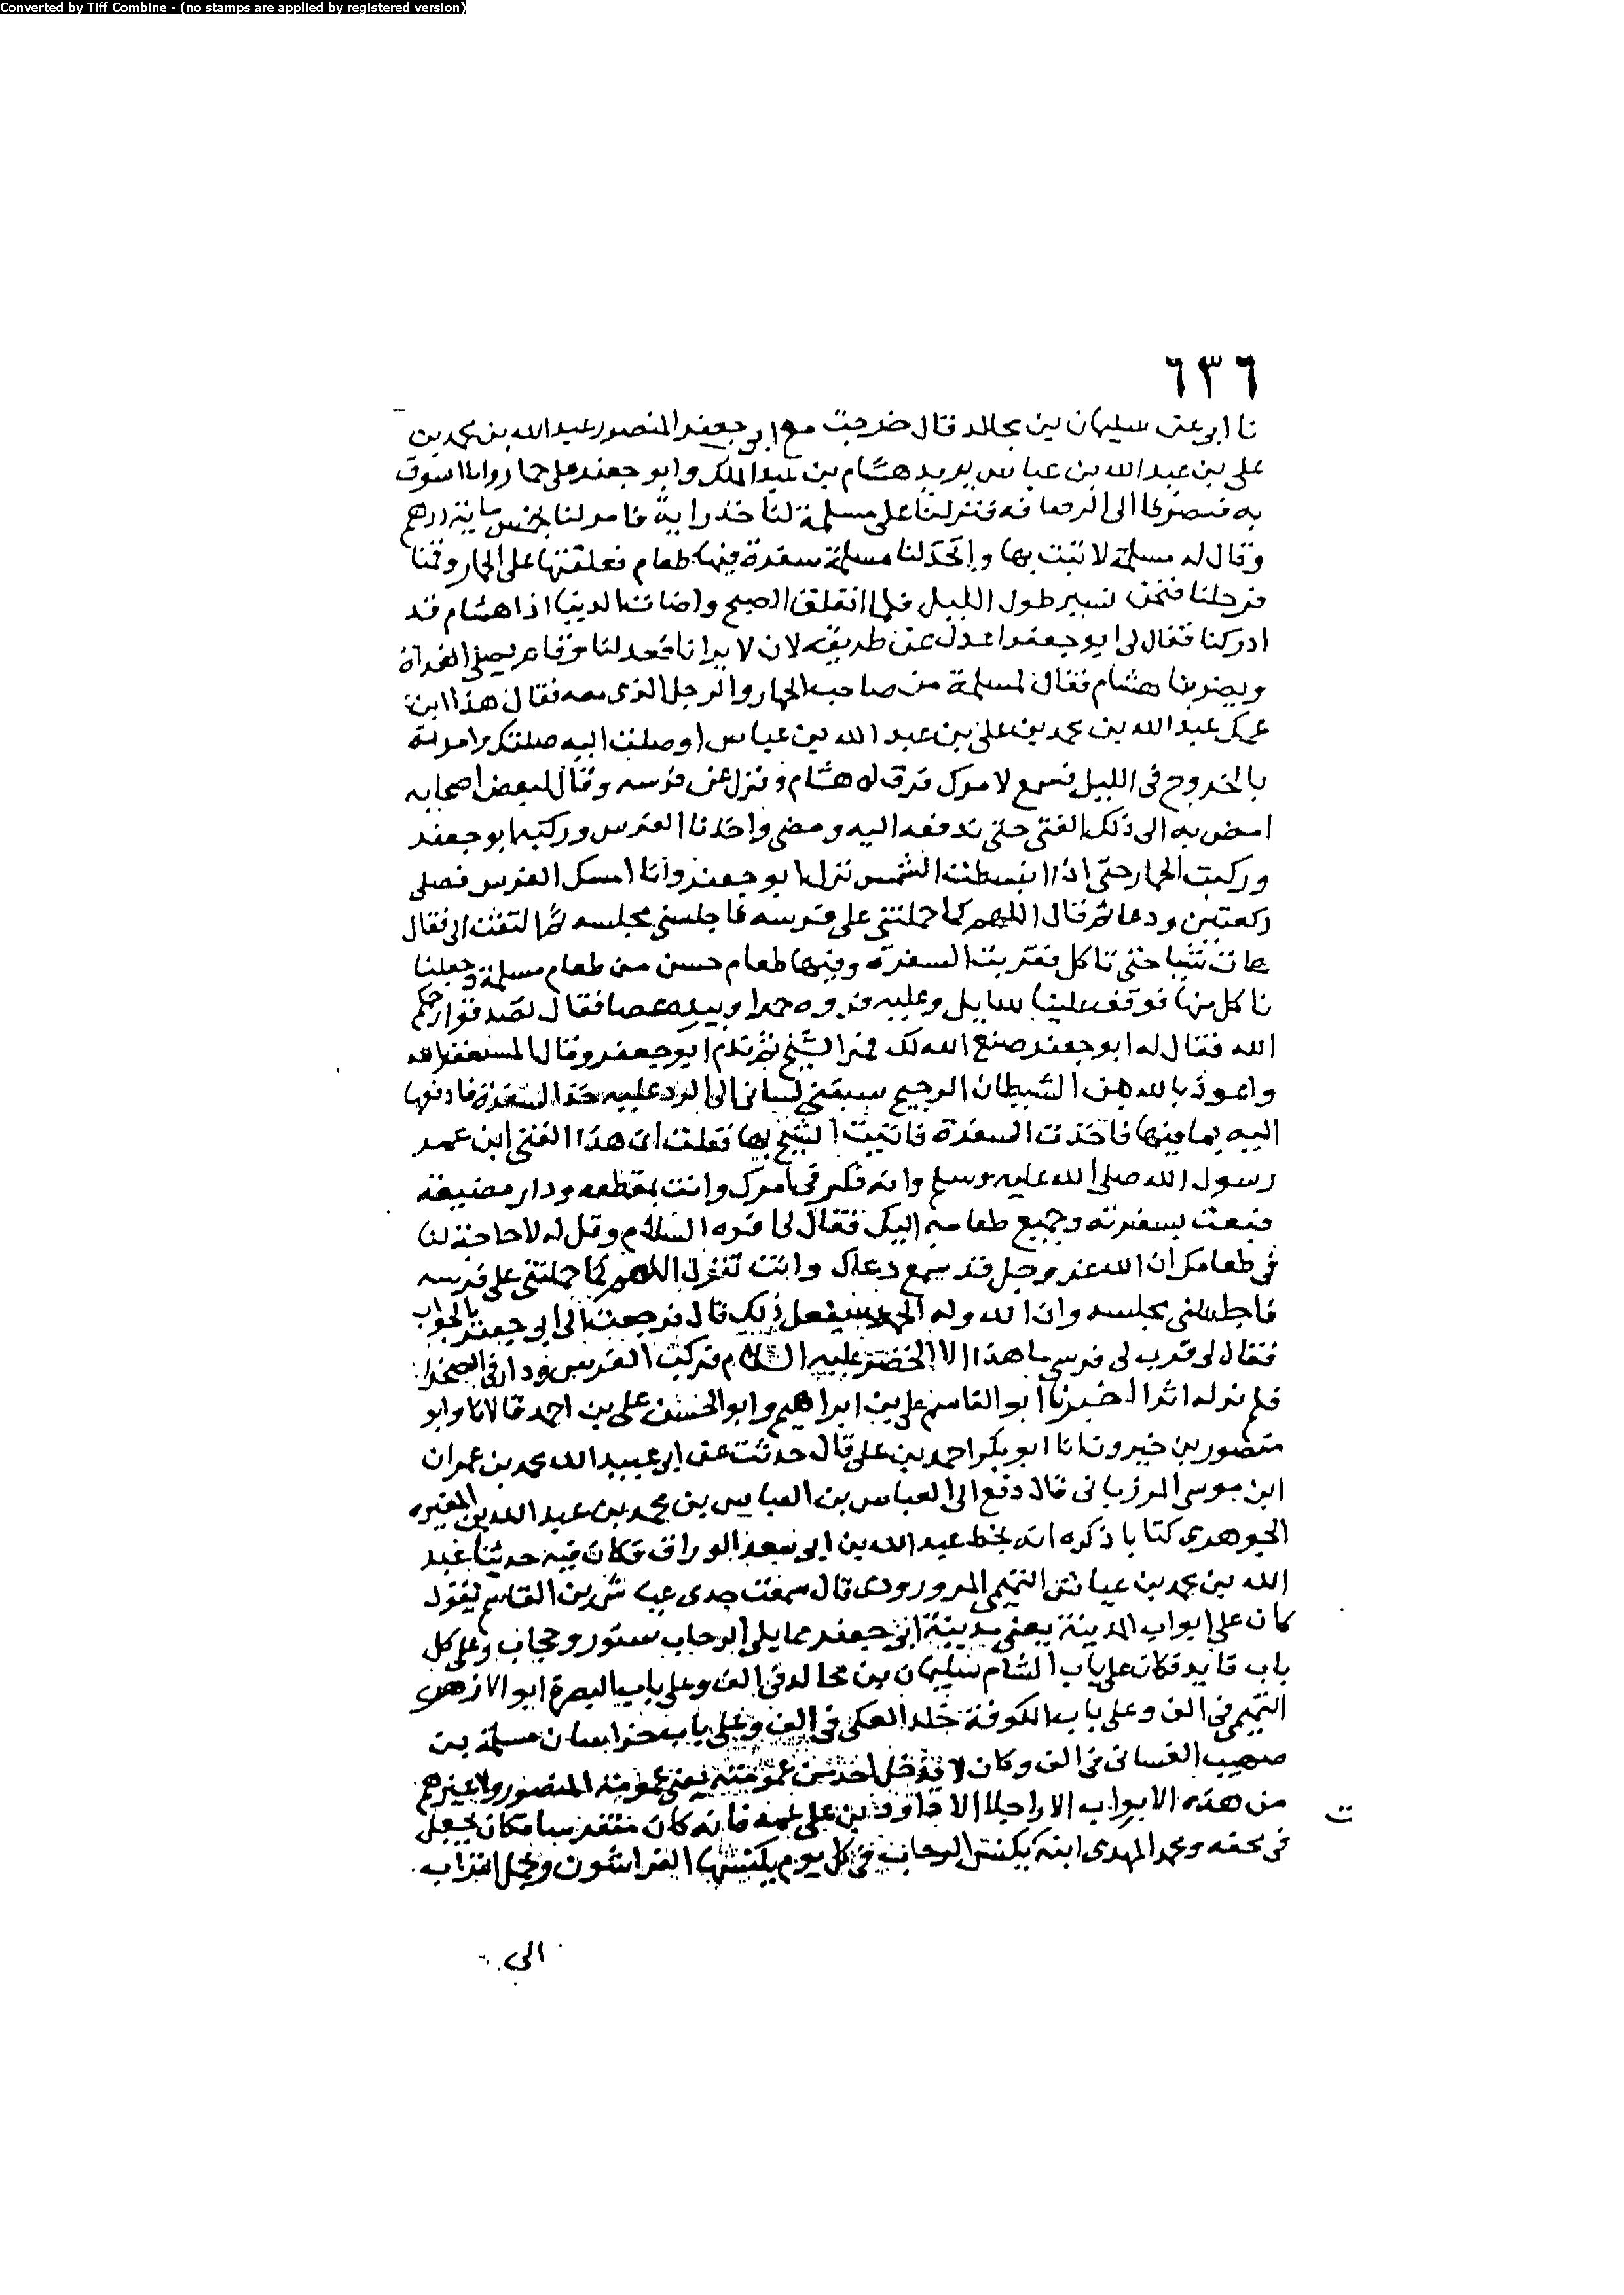 Converted by Tiff Combine - (no stamps are applied by registered version)
٦٣٦
نا ابى عن سليمان بن مجالد قال خرجت مع ابى جعفر المنصور عبد الله بن محمد بن
على بن عبد الله بن عباس يريد هشام بن عبد الملك وابو جعفر على حمار وانا اسوق
به فصرنا الى الرصافه فنزلنا على مسلمة لنا خذرابية فامر لنا بخمس ماية درهم
وقال له مسلمة لا تبت بها واتخذ لنا مسلمة سفرة فيها طعام فعلقتها على الحمار وقمنا
فرحلنا فنحن نسير طول الليل فلما انفلق الصبح واضات الدنيا اذا هشام قد
ادركنا فقال لى ابو جعفر اعدل عن طريقه لان لا يرانا فعدلنا يصلى الغداة
ويضربنا هشام فقال لمسلمة من صاحب الحمار والرجل الذى معه فقال هذا ابن
عمك عبد الله بن محمد بن على بن عبد الله بن عباس اوصلت اليه صلتك وامرته
بالخروج فى الليل فسمع لامرك فرق له هشام ونزل عن فرسه وقال لبعض اصحابه
امض به الى ذلك الفتى حتى تدفعه اليه ومضى واخذنا الفرس وركبه ابو جعفر
وركبت الحمار حتى اذا انبسطت الشمس نزل ابو جعفر وانا امسك الفرس فصلى
ركعتين ودعا ثم قال اللهم كما حملتنى على فرسه فاجلسنى مجلسه ثم التفت الى فقال
هات شيا حتى ناكل فقربت السفرة وفيها طعام حسن من طعام مسلمة وجعلنا
ناكل منها فوقف علينا سايل وعليه فروه حمرا وبيده عصا فقال تصدقوا رحمكم
الله فقال له ابو جعفر صنع الله لك فمر الشيخ ثم ندم ابو جعفر وقال استغفر الله
واعوذ بالله من الشيطان الرجيم سبقنى لسانى الى الرد عليه خذ السفرة فادفعها
اليه بما فيها فاخذت السفرة فاتيت الشيخ بها فقلت ان هذا الفتى ابن عم
رسول الله صلى الله عليه وسلم وانه فكر فى امرك وانت بمقطعه ودار مضيعة
فبعث بسفرته وجميع طعامه اليك فقال لى اقره السلام وقل له لا حاجة لنا
فى طعامك ان الله عز وجل قد سمع دعاك وانت تقول اللهم كما حملتنى على فرسه
فاجلسنى مجلسه وان الله وله الحمد سيفعل ذلك قال فرجعت الى ابى جعفر بالجواب
فقال لى قرب لى فرسى ما هذا الا الخضر عليه السلام فركب الفرس ودار فى الصحرا
فلم نر له اثرا اخبرنا ابو القاسم على بن ابراهيم وابو الحسن على بن احمد قالا نا وابو
منصور بن خيرون انا ابو بكر احمد بن على قال حدثت عن ابى عبيد الله محمد بن عمران
ابن موسى المرزبانى قال دفع الى العباس بن العباس بن محمد بن عبد الله بن المغيره
الجوهرى كتابا ذكره انه بخط عبد الله بن ابى سعد الوراق فكان فيه حدثنا عبد
الله بن محمد بن عياش التميمى المرورودى قال سمعت جدى عياش بن القاسم يقول
كان على ابواب المدينة يعنى مدينة ابى جعفر مما يلى الرحاب ستور وحجاب وعلى كل
باب قايد فكان على باب الشام سليمان بن مجالد فى الف وعلى باب البصرة ابو الازهر
التميمى فى الف وعلى باب الكوفة خالد العكى فى الف وعلى باب خراسان مسلمة بن
صهيب الغسانى فى الف وكان لا يدخل احد من عمومته يعنى عمومة المنصور ولا غيرهم
من هذه الابواب الا راجلا الا داود بن على عمه فانه كان منقرسا فكان يحمل
فى محفه ومحمد المهدى ابنه تكنس الرحاب فى كل يوم يكنسها الفراشون ويحمل التراب
ت
الى